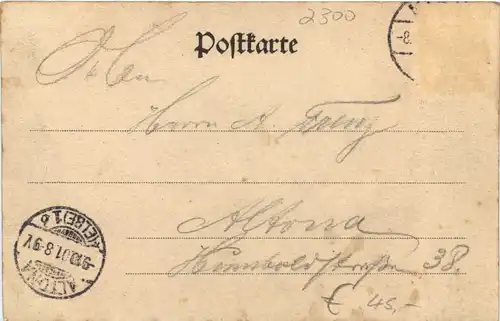 2300
Postkarte
Herrn A. Franz
Altona
Humboldstraße 38.
€ 45,-
ALTONA (ELBE) 1 b
9.10.01.8-9V.
-8.